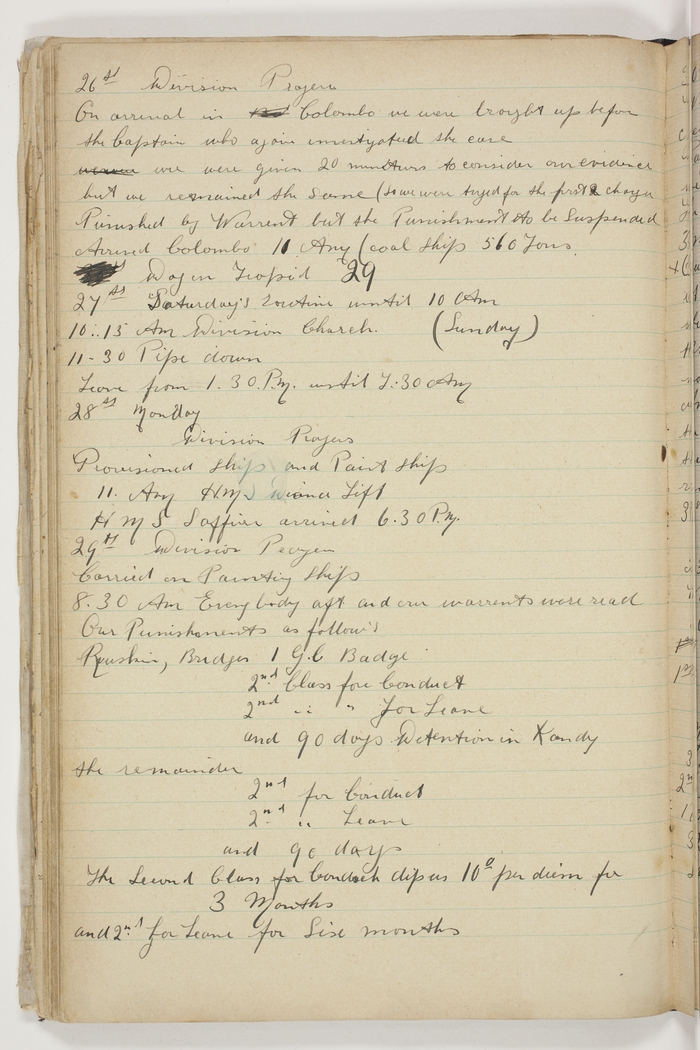 26st Division Prayers
On arrival in Colombo we were brought up befor
the Captain who again investigated the case
we were given 20 minutes to consider our evidence
but we remained the same (so we were for the first charge
Punished by Warrent but the Punishment to be Suspended
Arrived Colombo 11 Am (coal Ship 560 Tons
29
27st Saturday's routine until 10 Am
10.15 Am Division Church. (Sunday)
11-30 Pipe down
Leave from 1.30.P.M. until 7:30 Am
28st Monday
Division Prayers
Provisioned Ship and Paint Ship
11. Am H.M.S Left
H M S arrived 6.30 P.M.
29st Division Prayers
Carried on Painting Ship
8.30 Am Everybody aft and our warrents were read
Our Punishments as follows
Bridges 1 G.C Badge
2nd Class for Conduct
2nd " " for Leave
and 90 days Detention in Kandy
the remainder
2nd for Conduct
2nd " Leave
and 90 days
The Second Class for Conduct us 10d per diem for
3 Months
and 2nd for Leave for Six months